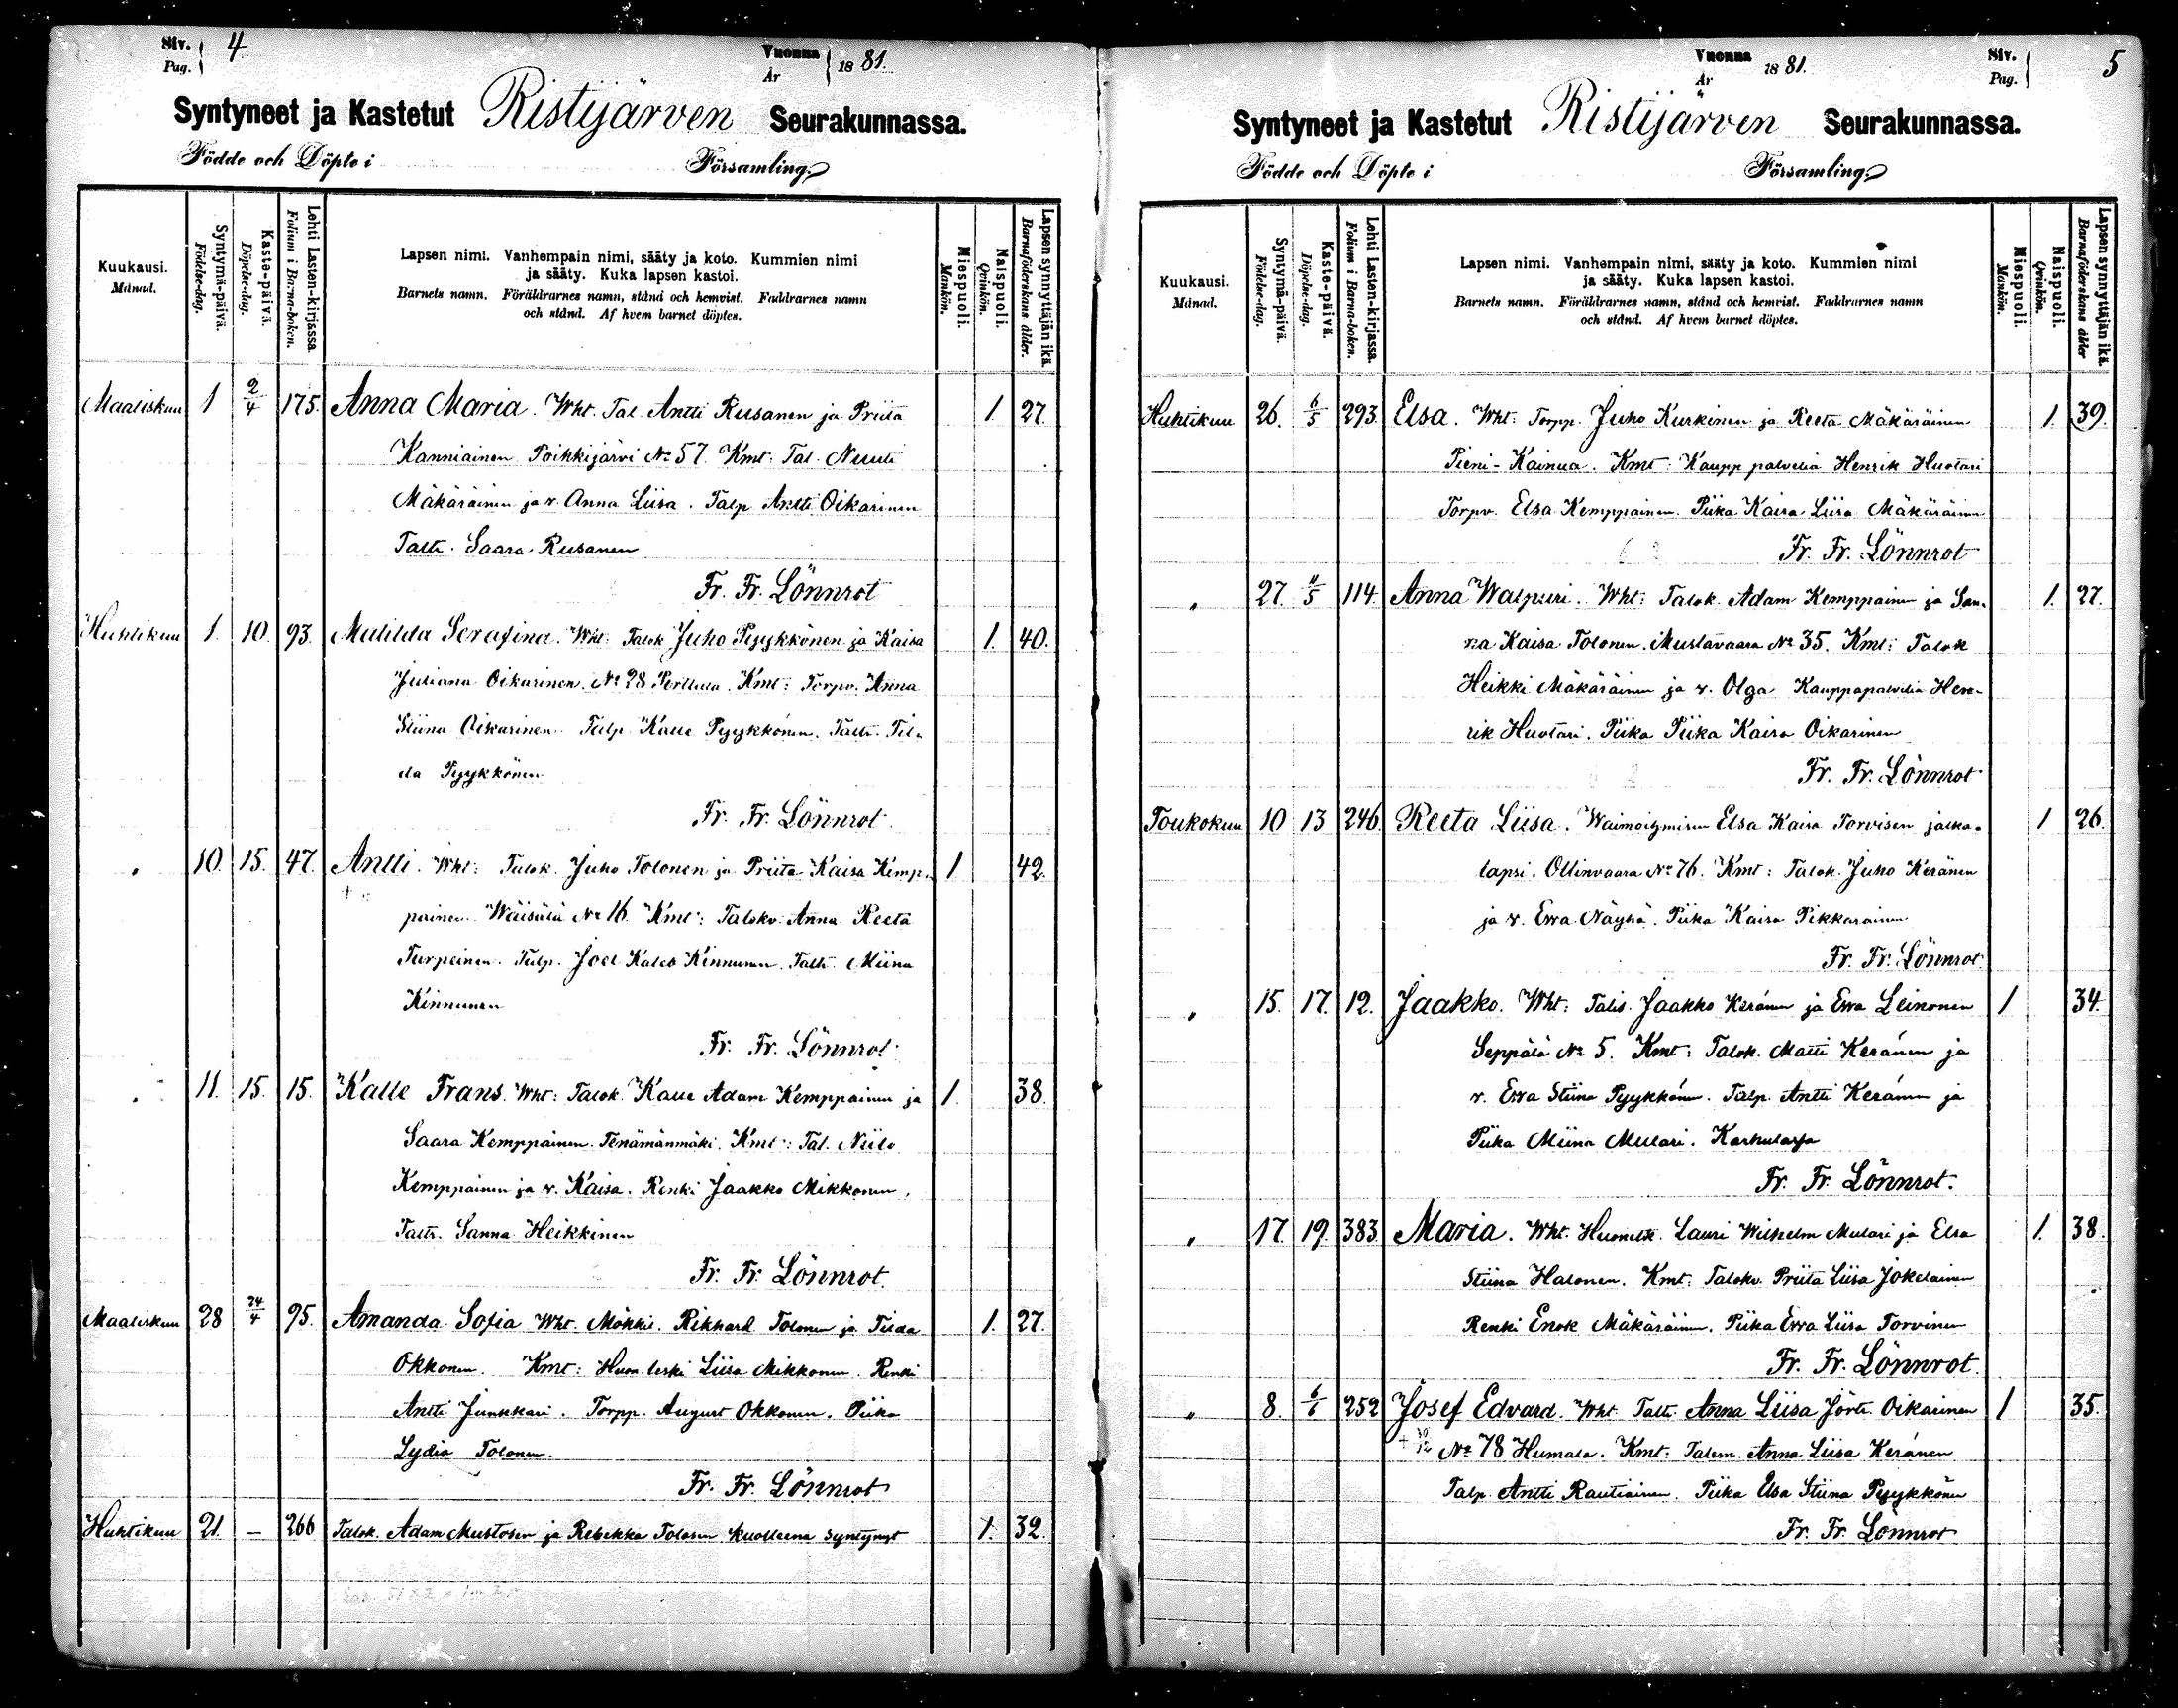 Siv. 4
Pag.
Vuonna 1881.
År
Syntyneet ja Kastetut Ristijärven Seurakunnassa.
Födde och Döpte i Församling.
Kuukausi.
Månad.
Syntymä-päivä.
Födelse-dag.
Kaste-päivä.
Döpelse-dag.
Lehti Lasten-kirjassa.
Folium i Barna-boken.
Lapsen nimi. Vanhempain nimi, sääty ja koto. Kummien nimi
ja sääty. Kuka lapsen kastoi.
Barnets namn. Föräldrarnes namn, stånd och hemvist. Faddrarnes namn
och stånd. Af hvem barnet döptes.
Miespuoli.
Mankön.
Naispuoli.
Qvinkön.
Lapsen synnyttäjän ikä.
Barnaföderskans ålder.
Maaliskuu 1 2/4 175. Anna Maria. Wht. Tal. Antti Rusanen ja Priita 1 27.
Kanniainen Poikkijärvi No 57. Kmt: Tal. Nuuti
Mäkäräinen ja v. Anna Liisa. Talp. Antti Oikarinen
Taltr. Saara Rusanen
Fr. Fr. Lönnrot
Huhtikuu 1. 10. 93. Matilda Serafina. Wht: Talok Juho Pyykkönen ja Kaisa 1. 40.
Juliana Oikarinen. No 28 Perttula. Kmt: Torpv. Anna
Stiina Oikarinen. Talp. Kalle Pyykkönen. Taltr. Til-
da Pyykkönen
Fr. Fr. Lönnrot
" 10. 15. 47. Antti. Wht: Talok. Juho Tolonen ja Priita Kaisa Kemp- 1 42.
painen. Wäisälä No 16. Kmt: Talokv. Anna Reeta
Turpeinen. Talp. Joel Kaleb Kinnunen. Taltr. Miina
Kinnunen
Fr. Fr. Lönnrot
" 11. 15. 15. Kalle Frans. Wht: Talok. Kalle Adam Kemppainen ja 1. 38.
Saara Kemppainen. Tenämänmäki. Kmt: Tal. Niilo
Kemppainen ja v. Kaisa. Renki Jaakko Mikkonen.
Taltr. Sanna Heikkinen
Fr. Fr. Lönnrot.
Maaliskuu 28 24/4 95. Amanda Sofia Wht. Mökkil. Rikhard Tolonen ja Tilda 1. 27.
Okkonen. Kmt: Huon. leski Liisa Mikkonen. Renki
Antti Junkkari. Torpp. August Okkonen. Piika
Lydia Tolonen.
Fr. Fr. Lönnrot
Huhtikuu 21. — 266 Talok. Adam Mustosen ja Rebekka Tolosen kuolleena syntynyt 1. 32.
Vuonna 1881.
År
Siv. 5
Pag.
Syntyneet ja Kastetut Ristijärven Seurakunnassa.
Födde och Döpte i Församling.
Kuukausi.
Månad.
Syntymä-päivä.
Födelse-dag.
Kaste-päivä.
Döpelse-dag.
Lehti Lasten-kirjassa.
Folium i Barna-boken.
Lapsen nimi. Vanhempain nimi, sääty ja koto. Kummien nimi
ja sääty. Kuka lapsen kastoi.
Barnets namn. Föräldrarnes namn, stånd och hemvist. Faddrarnes namn
och stånd. Af hvem barnet döptes.
Miespuoli.
Mankön.
Naispuoli.
Qvinkön.
Lapsen synnyttäjän ikä.
Barnaföderskans ålder
Huhtikuu 26. 6/5 293. Elsa. Wht: Torpp. Juho Kurkinen ja Reeta Mäkäräinen 1. 39.
Pieni-Kainua. Kmt: Kaupp palvelia Henrik Huotari
Torpv. Elsa Kemppainen. Piika Kaisa Liisa Mäkäräinen
Fr. Fr. Lönnrot
" 27. 11/5 114. Anna Walpuri. Wht: Talok. Adam Kemppainen ja San- 1. 27.
na Kaisa Tolonen. Mustavaara No 35. Kmt: Talok
Heikki Mäkäräinen ja v. Olga Kauppapalvelia Hen-
rik Huotari. Piika Piika Kaisa Oikarinen
Fr. Fr. Lönnrot
Toukokuu 10 13 246. Reeta Liisa. Waimoihmisen Elsa Kaisa Torvisen jalka- 1 26.
lapsi. Ollinvaara No 76. Kmt: Talok. Juho Keränen
ja v. Ewa Näyhä. Piika Kaisa Pikkarainen
Fr. Fr. Lönnrot.
" 15. 17. 12. Jaakko. Wht: Talis. Jaakko Keränen ja Ewa Leinonen 1 34.
Seppälä No 5. Kmt: Talok. Matti Keränen ja
v. Ewa Stiina Pyykkönen. Talp. Antti Keränen ja
Piika Miina Mulari. Karhulasja
Fr. Fr. Lönnrot.
" 17. 19. 383. Maria. Wht. Lauri Wilhelm Mulari ja Elsa 1. 38.
Stiina Halonen. Kmt: Talokv. Priita Liisa Jokelainen
Renki Enok Mäkäräinen. Piika Ewa Liisa Torvinen
Fr. Fr. Lönnrot.
" 8. 6/6 252 Josef Edvard. Wht Taltr. Anna Liisa Oikarinen 1 35.
+ 30/12 No 78 Humala. Kmt: Talem. Anna Liisa Keränen
Talp. Antti Rautiainen. Piika Elsa Stiina Pyykkönen
Fr. Fr. Lönnrot